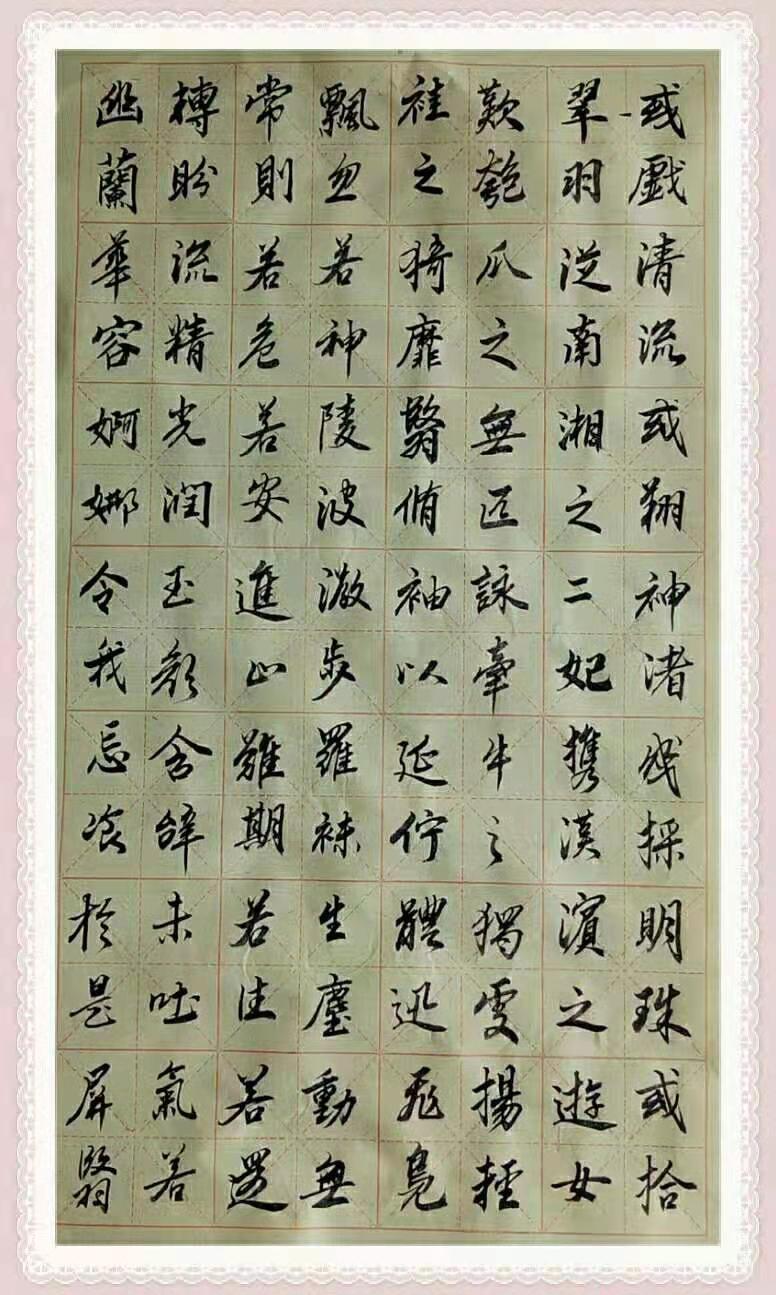 或戲清流或翔神渚或採明珠或拾
翠羽從南湘之二妃攜漢濱之遊女
歎匏瓜之無匹詠牽牛之獨處揚輕
袿之猗靡翳脩袖以延佇體迅飛鳧
飄忽若神陵波微步羅襪生塵動無
常則若危若安進止難期若往若還
轉盼流精光潤玉顏含辭未吐氣若
幽蘭華容婀娜令我忘飡於是屏翳